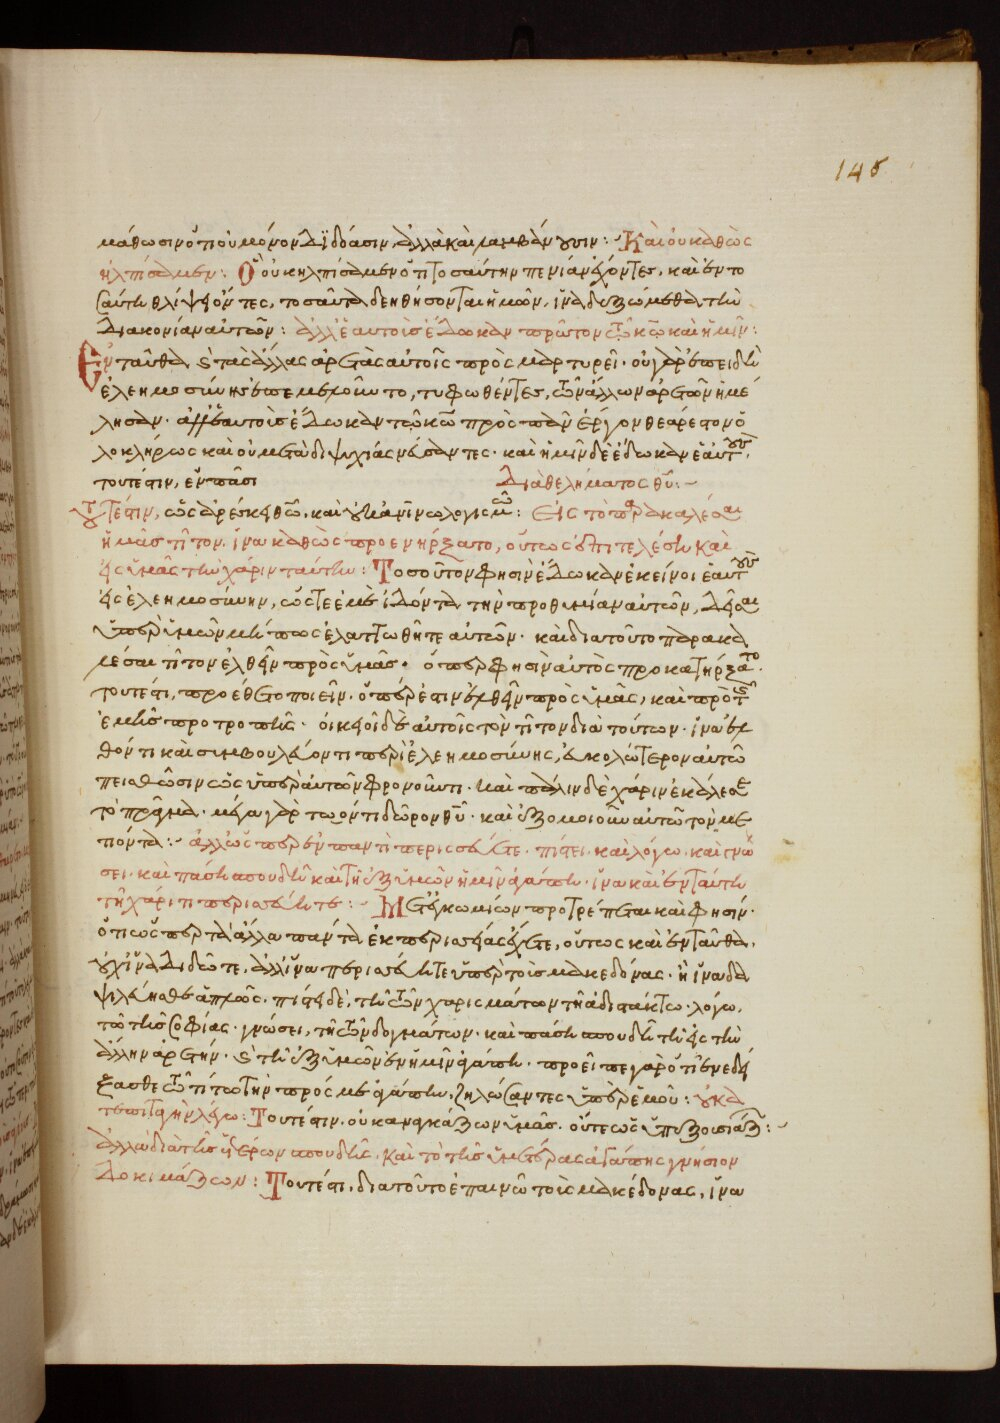 145
μάθωσιν ὅτι οὐ μόνον διδόασιν ἀλλὰ καὶ λαμβάνουσιν: Καὶ οὐ καθὼς
ἠλπίσαμεν: Οὐκ ἠλπίσαμεν ὅτι τοσαύτην πενίαν ἔχοντες, καὶ ἐν το
σαύτῃ θλίψει ὄντες, τοσαῦτα δεηθήσονται ἡμῶν, ἵνα δεξώμεθα τὴν
διακονίαν αὐτῶν: ἀλλ' ἑαυτοὺς ἔδωκαν πρῶτον τῷ κῶ καὶ ἡμῖν:
Ἐνταῦθα τὰς ἄλλας ἀρετὰς αὐτοῖς προσμαρτυρεῖ· οὐ γὰρ ἐπειδὴ
ἐλεημοσύνης ἐπεμελοῦντο, τυφωθέντες, τῶν ἄλλων ἀρετῶν ἠμέ
λησαν· ἀλλ' ἑαυτοὺς ἔδωκαν τῷ κῶ πρὸς πᾶν ἔργον θεάρεστον ὁ
λοκλήρως καὶ οὐ μετὰ διψυχίας νεύσαντες· καὶ ἡμῖν δὲ ἔδωκαν ἑαυτούς,
τουτέστιν, ἐν πᾶσι διὰ θελήματος θυ:
Τουτέστιν, ὡς ἀρέσκει θῶ, καὶ οὐκ ἀνίνω λογισμῶ: Εἰς τὸ παρακαλέσαι
ἡμᾶς τίτον. ἵνα καθὼς προενήρξατο, οὕτως ἐπιτελέσῃ καὶ
εἰς ὑμᾶς τὴν χάριν ταύτην: Τοσοῦτόν φησιν ἔδωκαν ἐκεῖνοι ἑαυτοὺς
εἰς ἐλεημοσύνην, ὥστε ἐμὲ ἰδόντα τὴν προθυμίαν αὐτῶν, δεῖσαι
ὑπὲρ ὑμῶν μήπως ἐλαττωθῆτε αὐτῶν· καὶ διατοῦτο παρακα
λέσαι τίτον ἐλθεῖν πρὸς ὑμᾶς· ὅπερ φησὶν αὐτὸς προκατήρξατο.
τουτέστι, προέθετο ποιεῖν. ὅπερ ἐστὶν ἐλθεῖν πρὸς ὑμᾶς, καὶ πρὸ τῆς
ἐμῆς προτροπῆς· οἰκειοῖ δὲ αὐτοῖς τὸν τίτον διὰ τούτων· ἵνα ἐλ
θόντι καὶ συμβουλεύοντι περὶ ἐλεημοσύνης, εὐκολώτερον αὐτῶ
πεισθῶσιν ὡς ὑπὲρ αὐτῶν φρονοῦντι· καὶ πάλιν δὲ χάριν ἐκάλεσε
τὸ πρᾶγμα· μέγα γὰρ τῶ ὄντι δῶρον θυ· καὶ ἐξομοιοῦν αὐτῶ τὸν με
τιόντα: ἀλλ' ὥσπερ ἐν παντὶ περισσεύετε· πίστει· καὶ λόγω· καὶ γνώ
σει· καὶ πάσῃ σπουδῇ καὶ τῇ ἐξ ὑμῶν ἡμῖν ἀγάπῃ· ἵνα καὶ ἐν ταύτῃ
τῇ χάριτι περισσεύητε: Μετ' ἐγκωμίων προτρέπεται καὶ φησίν·
ὅτι ὥσπερ τὰ ἄλλα πάντα ἐκ περισσείας ἔχετε, οὕτως καὶ ἐνταῦθα.
οὐχ ἵνα διδῶτε, ἀλλ' ἵνα περισσεύητε ὑπὲρ τοὺς μακεδόνας· ἢ ἵνα δα
ψιλεύησθε ἁπλῶς· πίστει δὲ, τῇ τῶν χαρισμάτων τῇ ἀδιστάκτω· λόγω,
τῶ τῆς σοφίας· γνώσει, τῇ τῶν δογμάτων· καὶ πάσῃ σπουδῇ τῇ εἰς τὴν
ἄλλην ἀρετήν· τῇ ἐξ ὑμῶν ἐν ἡμῖν ἀγάπῃ· προεῖπε γὰρ ὅτι ἐνεδεί
ξασθε τότε τὴν πρός με ἀγάπην, ζηλώσαντες ὑπὲρ ἐμοῦ: οὐ κα
τ' ἐπιταγὴν λέγω: Τουτέστιν. οὐκ ἀναγκάζων ὑμᾶς. οὔτε ὡς ὑπεξουσιάζων:
ἀλλὰ διὰ τῆς ἑτέρων σπουδῆς. καὶ τὸ τῆς ὑμετέρας ἀγάπης γνήσιον
δοκιμάζων: Τουτέστι, διατοῦτο ἐπαινῶ τοὺς μακεδόνας, ἵνα